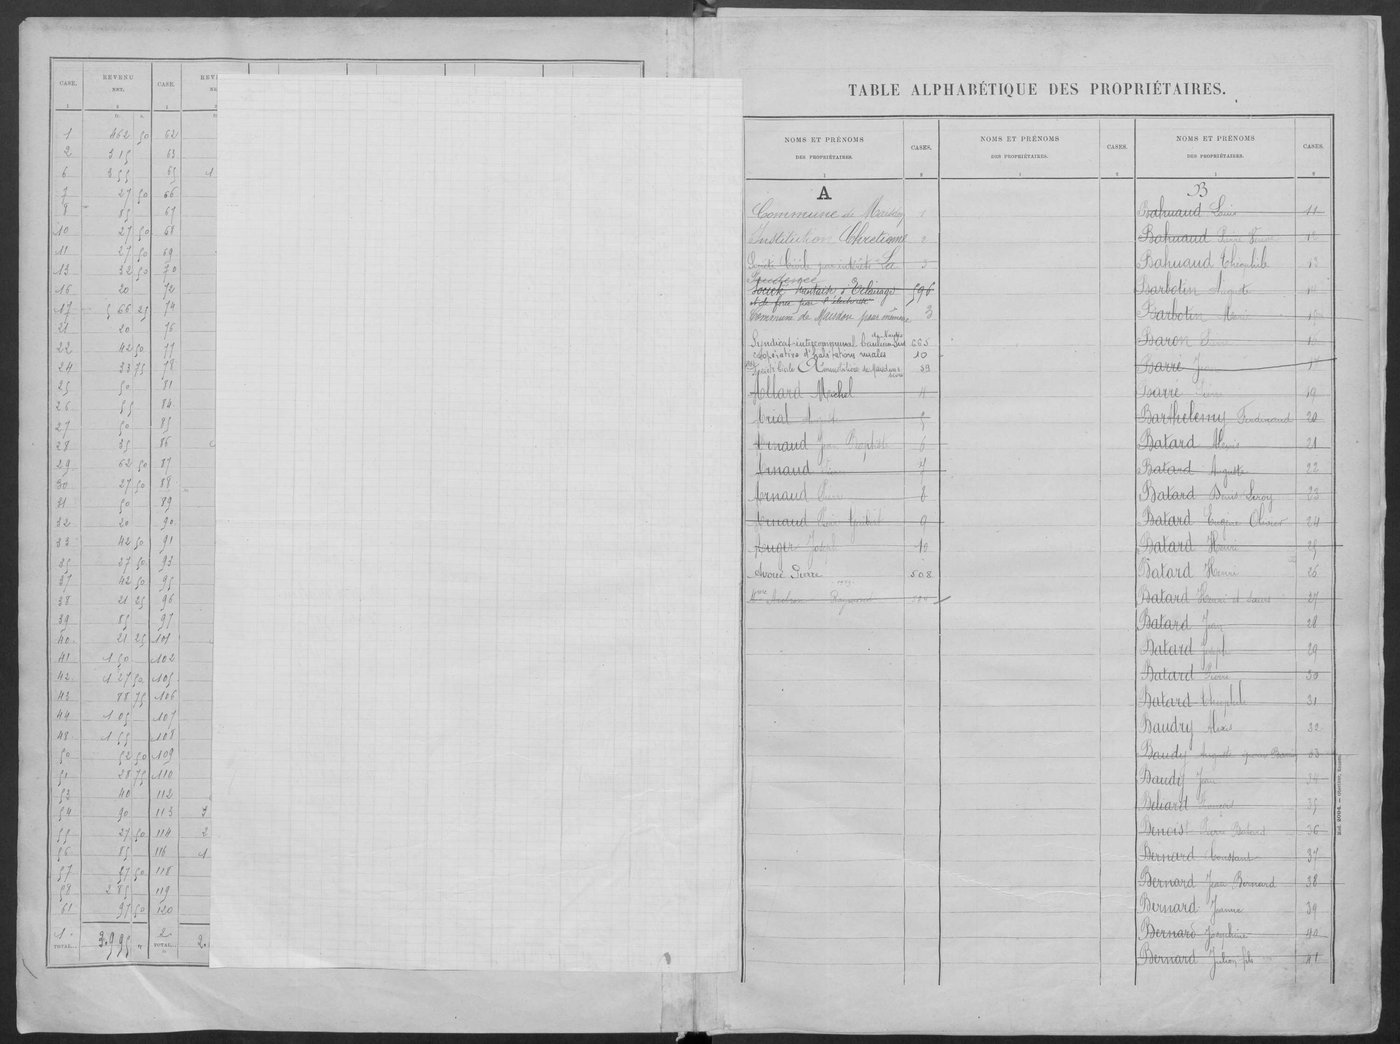 CASE. REVENU NET. CASE. REV
1 2 1
fr. c.
1 462 50 62
2 315 63
6 355 65 1
7 27 50 66
8 85 67
10 27 50 68
11 27 50 69
13 32 50 70
16 20 72
17 566 25 74
21 20 76
22 42 50 77
24 33 75 78
25 50 81
26 85 84
27 50 85
28 35 86
29 62 50 87
30 27 50 88
31 50 89
32 20 90
33 42 50 91
35 27 50 93
37 42 50 95
38 21 25 96
39 85 97
40 21 25 101
41 150 102
42 127 50 105
43 88 75 106
44 105 107
48 155 108
50 52 50 109
51 28 75 110
53 40 112
54 90 113
55 27 50 114 2
56 85 116 1
57 57 50 118
58 285 119
61 97 50 120
1 TOTAL. 3.995 " 2 TOTAL. 2.
TABLE ALPHABÉTIQUE DES PROPRIÉTAIRES.
NOMS ET PRÉNOMS DES PROPRIÉTAIRES. CASES. NOMS ET PRÉNOMS DES PROPRIÉTAIRES. CASES. NOMS ET PRÉNOMS DES PROPRIÉTAIRES. CASES.
1 2 1 2 1 2
A
Commune de 1
Institution Chretienne 2
Société Civile La 3
Société d'Eclairage 596
et de force par l'électricité
Commune de Mausdon pour 3
Syndicat intercommunal 565
coopérative d'habitations rurales 10
Société Civile Immobilière de 59
Allard Michel 4
Arial 5
Arnaud Jean Baptiste 6
Arnaud 7
Arnaud Pierre 8
Arnaud 9
Auger Joseph 10
Avoué Pierre 508
Raymond
B
Bahuaud Louis 11
Bahuaud Pierre 12
Bahuaud Théophile 13
Barbotin Auguste 14
Barbotin
Baron
Barré Jean 18
Barré Pierre 19
Barthélemy Ferdinand 20
Batard Alexis 21
Batard Auguste 22
Batard Leroy 23
Batard Eugène Olivier 24
Batard Henri 25
Batard Henri 26
Batard Henri et 27
Batard Jean 28
Batard Joseph 29
Batard Pierre 30
Batard Théophile 31
Baudry Alexis 32
Baudy Auguste 33
Baudy Jean 34
Beliard François 35
Benoist Pierre Batard 36
Bernard Constant 37
Bernard Jean Bernard 38
Bernard Jeanne 39
Bernard Joséphine 40
Bernard Julien fils 41